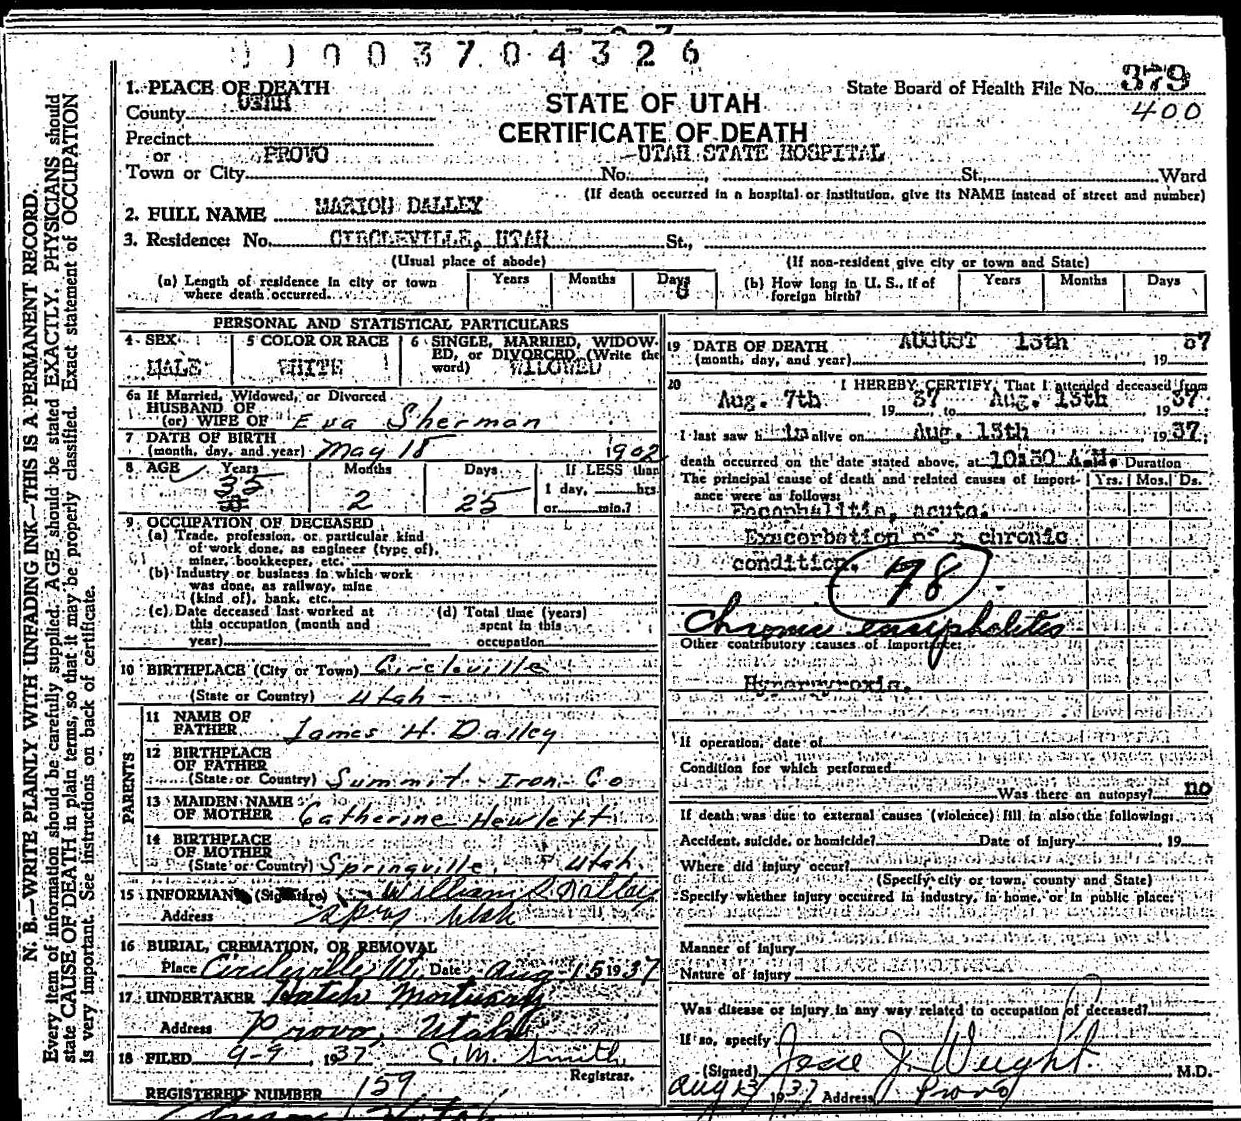 11003704326
1. PLACE OF DEATH
State Board of Health File No. 379
County UTAH
400
STATE OF UTAH
CERTIFICATE OF DEATH
Precinct
or PROVO
UTAH STATE HOSPITAL
Town or City No. St., Ward
(If death occurred in a hospital or institution, give its NAME instead of street and number)
2. FULL NAME MARION DALLEY
3. Residence: No. CIRCLEVILLE, UTAH St.,
(Usual place of abode) (If non-resident give city or town and State)
(a) Length of residence in city or town where death occurred. Years Months Days
(b) How long in U. S., if of foreign birth? Years Months Days
PERSONAL AND STATISTICAL PARTICULARS
4 SEX MALE
5 COLOR OR RACE WHITE
6 SINGLE, MARRIED, WIDOW-
ED, or DIVORCED (Write the
word) WIDOWED
6a If Married, Widowed, or Divorced
HUSBAND OF
(or) WIFE OF Eva Sherman
7 DATE OF BIRTH
(month, day, and year) May 18 1902
8 AGE Years 35 Months 2 Days 25
If LESS than
1 day, hrs.
or min.?
9 OCCUPATION OF DECEASED
(a) Trade, profession, or particular kind
of work done, as engineer (type of),
miner, bookkeeper, etc.
(b) Industry or business in which work
was done, as railway, mine
(kind of), bank, etc.
(c) Date deceased last worked at
this occupation (month and
year)
(d) Total time (years)
spent in this
occupation
10 BIRTHPLACE (City or Town) Circleville
(State or Country) Utah
PARENTS
11 NAME OF
FATHER James H. Dalley
12 BIRTHPLACE
OF FATHER
(State or Country) Summit - Iron - Co
13 MAIDEN NAME
OF MOTHER Catherine Hewlett
14 BIRTHPLACE
OF MOTHER
(State or Country) Springville, Utah
15 INFORMANT (Signature) William S Dalley
Address Utah
16 BURIAL, CREMATION, OR REMOVAL
Place Circleville Ut. Date Aug 15 1937
17 UNDERTAKER Hatch Mortuary
Address Provo, Utah
18 FILED 9-9, 1937 C. M. Smith
Registrar.
REGISTERED NUMBER 159
19 DATE OF DEATH AUGUST 13th
(month, day, and year) 19 37
20 I HEREBY CERTIFY, That I attended deceased from
Aug. 7th 19 37 to Aug. 13th 19 37;
I last saw h im alive on Aug. 13th 19 37;
death occurred on the date stated above, at 10:30 A.M. Duration
The principal cause of death and related causes of import-
ance were as follows:
Yrs. Mos. Ds.
Encephalitis, acute.
Exacerbation of a chronic
condition.
78
Chronic encephalitis
Other contributory causes of importance:
Hyperpyrexia.
If operation, date of
Condition for which performed
Was there an autopsy? no
If death was due to external causes (violence) fill in also the following:
Accident, suicide, or homicide? Date of injury 19
Where did injury occur?
(Specify city or town, county and State)
Specify whether injury occurred in industry, in home, or in public place:
Manner of injury
Nature of injury
Was disease or injury in any way related to occupation of deceased?
If so, specify
(Signed) Jesse J. Weight M.D.
Aug 13 1937 Address Provo
N. B.—WRITE PLAINLY WITH UNFADING INK—THIS IS A PERMANENT RECORD.
Every item of information should be carefully supplied. AGE should be stated EXACTLY. PHYSICIANS should
state CAUSE OF DEATH in plain terms, so that it may be properly classified. Exact statement of OCCUPATION
is very important. See instructions on back of certificate.